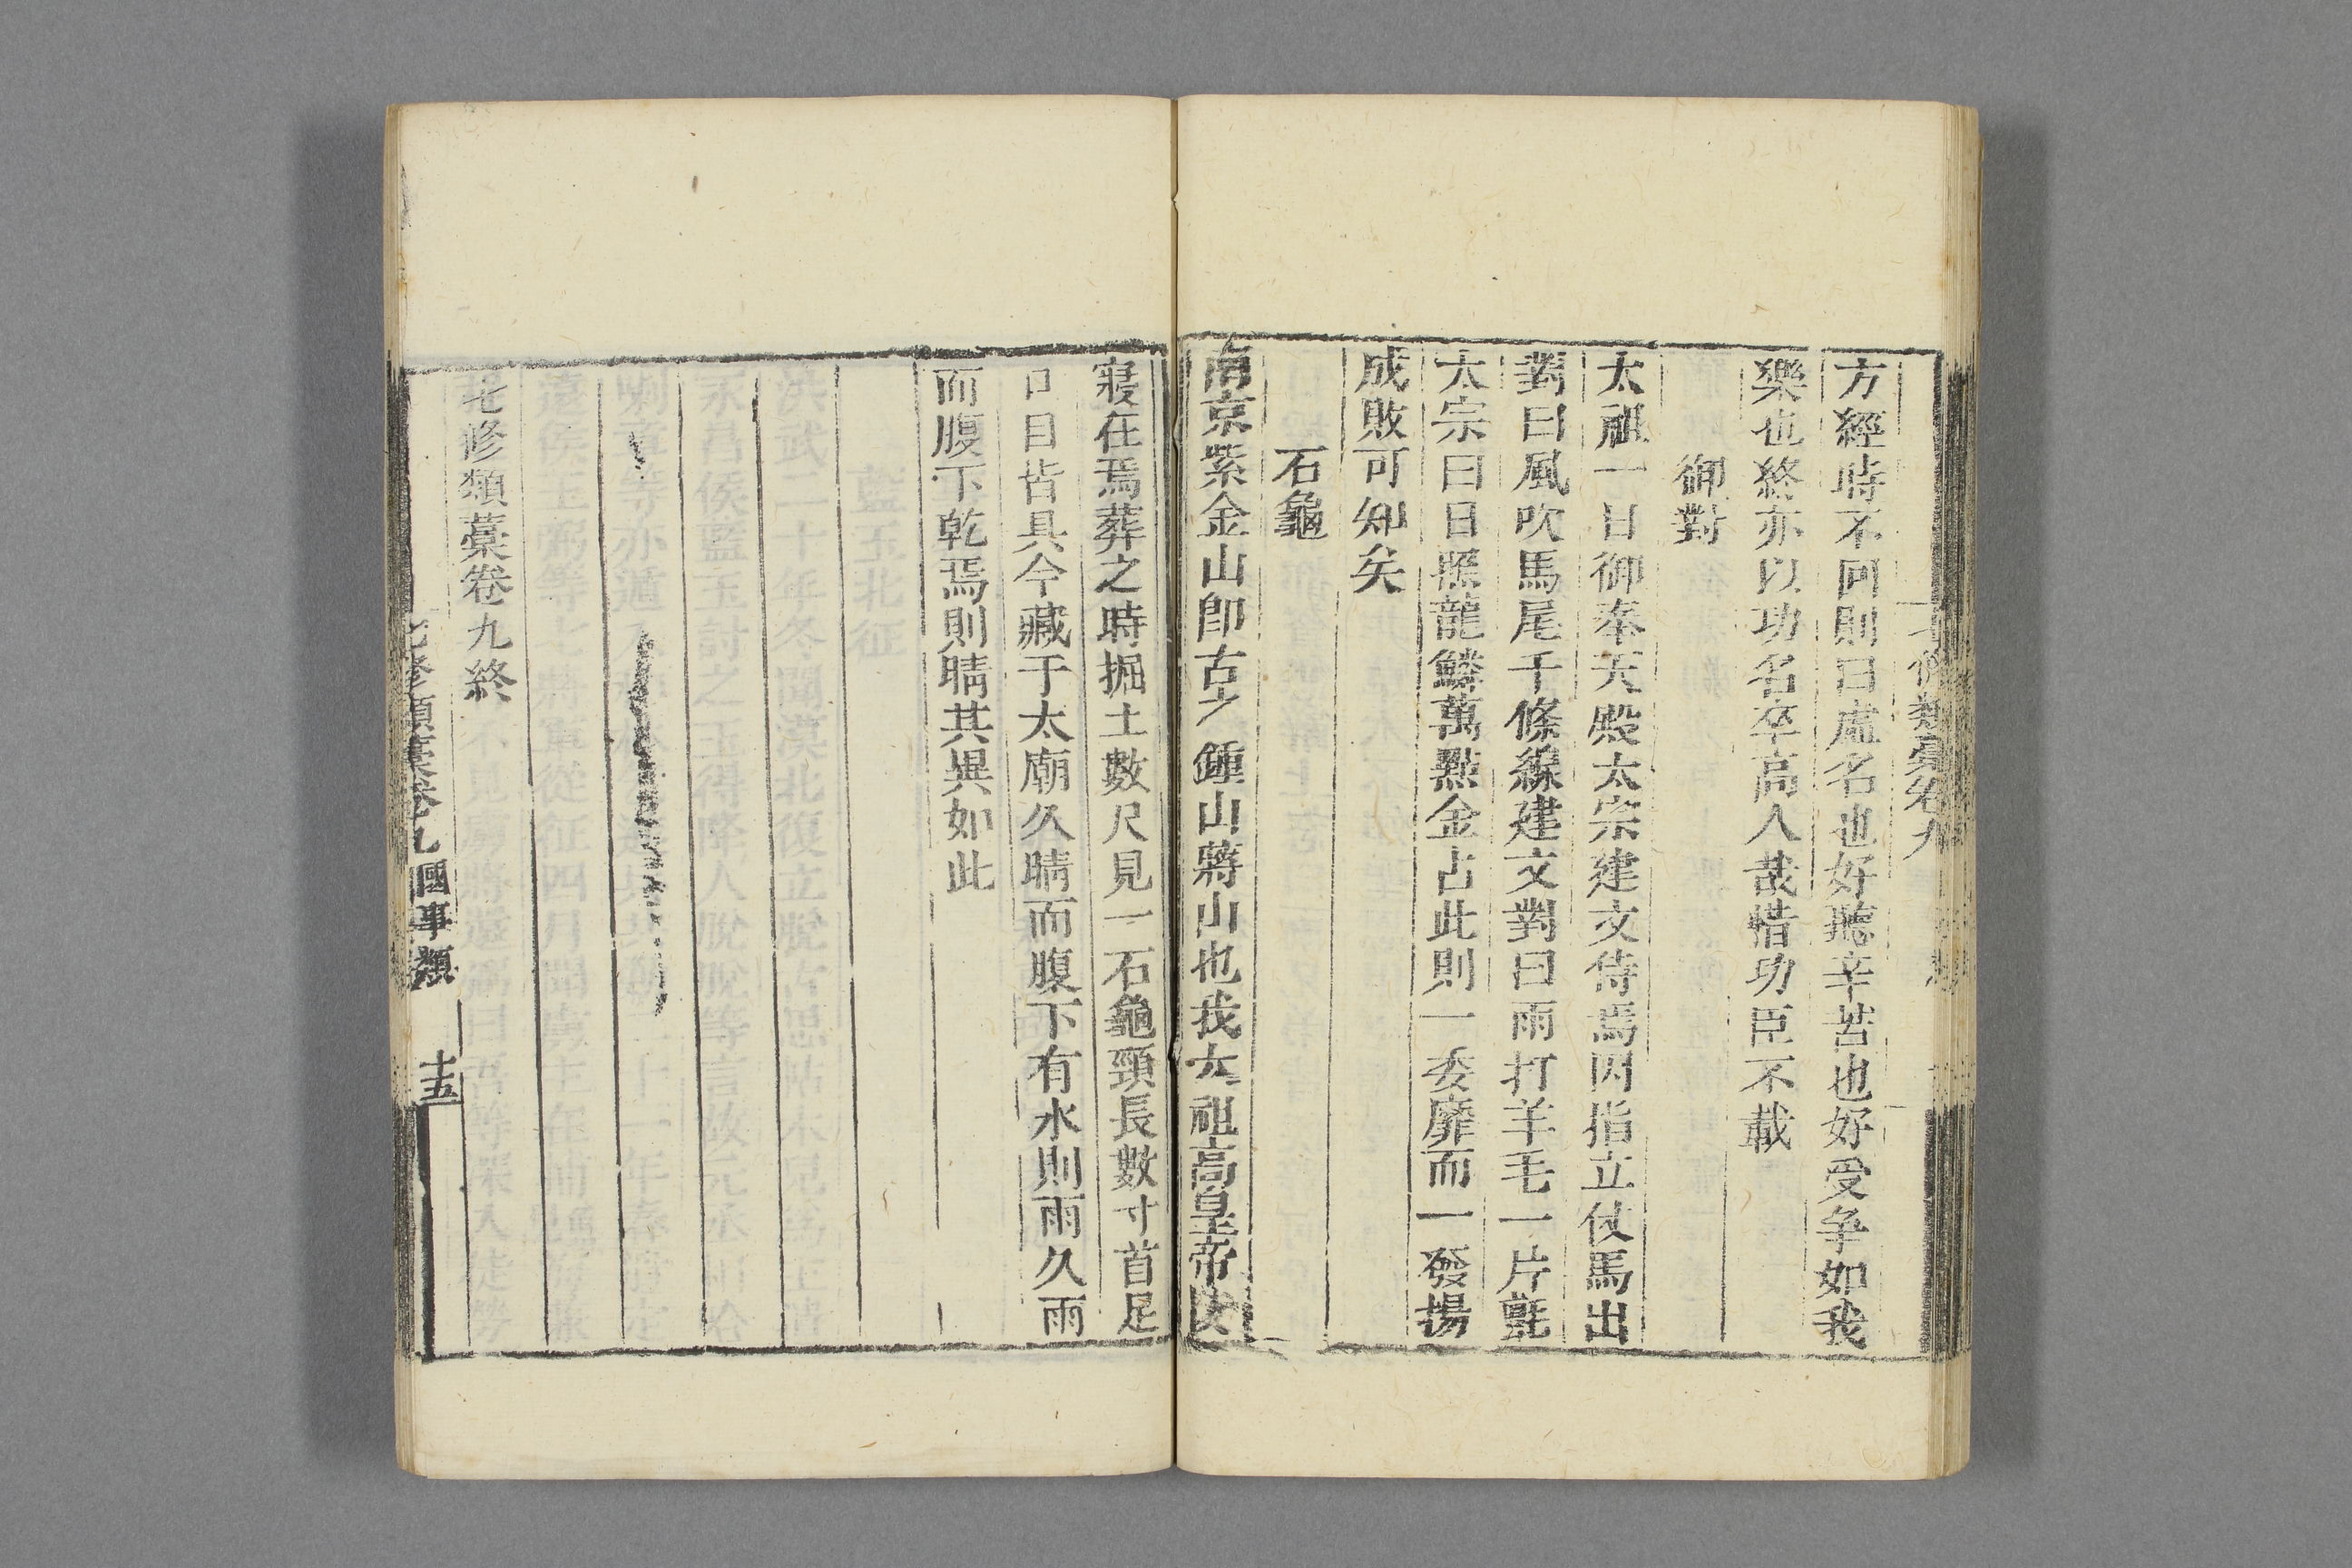 七修類藁卷九
方經時不同則曰虛名也好聽辛苦也好受爭如我
樂也終亦以功名卒高人哉惜功臣不載
御對
太祖一日御奉天殿太宗建文侍焉因指立仗馬出
對曰風吹馬尾千條線建文對曰雨打羊毛一片氈
太宗曰日照龍鱗萬點金占此則一委靡而一發揚
成敗可知矣
石龜
南京紫金山卽古之鍾山蔣山也我太祖高皇帝陵
寢在焉葬之時掘土數尺見一石龜頸長數寸首足
口目皆具今藏于太廟久晴而腹下有水則雨久雨
而腹下乾焉則晴其異如此
七修類藁卷九終
七修類藁卷九 國事類 十五